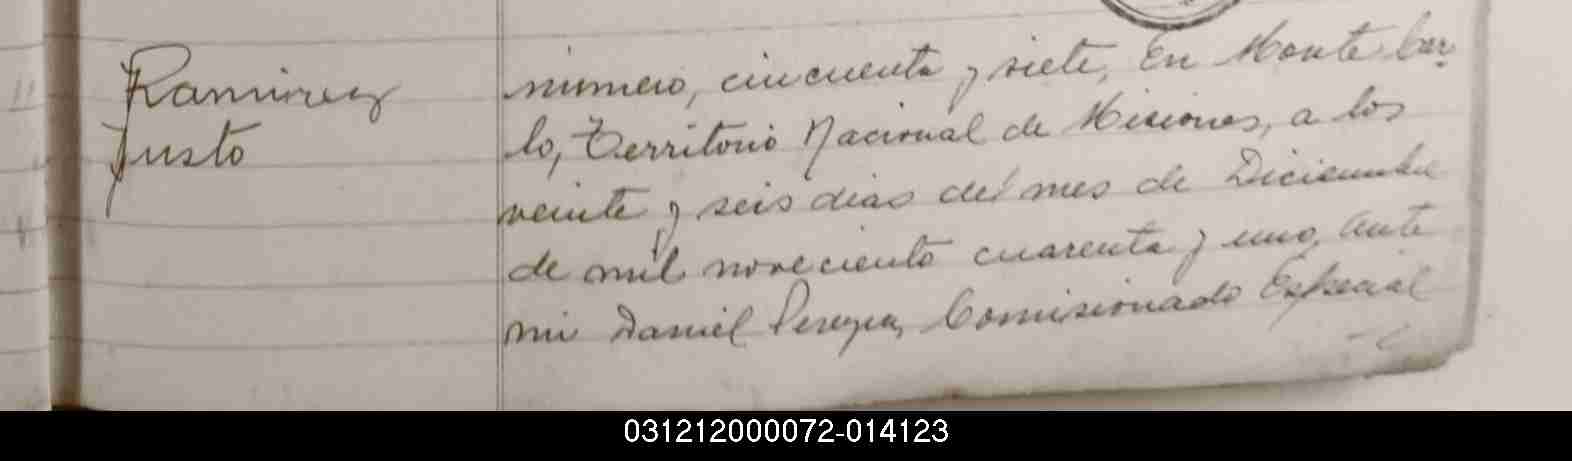 Ramirez
Justo
número, cincuenta y siete, En Monte Car-
lo, Territorio Nacional de Misiones, a los
veinte y seis dias del mes de Diciembre
de mil novecientos cuarenta y uno, ante
mi Daniel Pereyra, Comisionado Especial
031212000072-014123